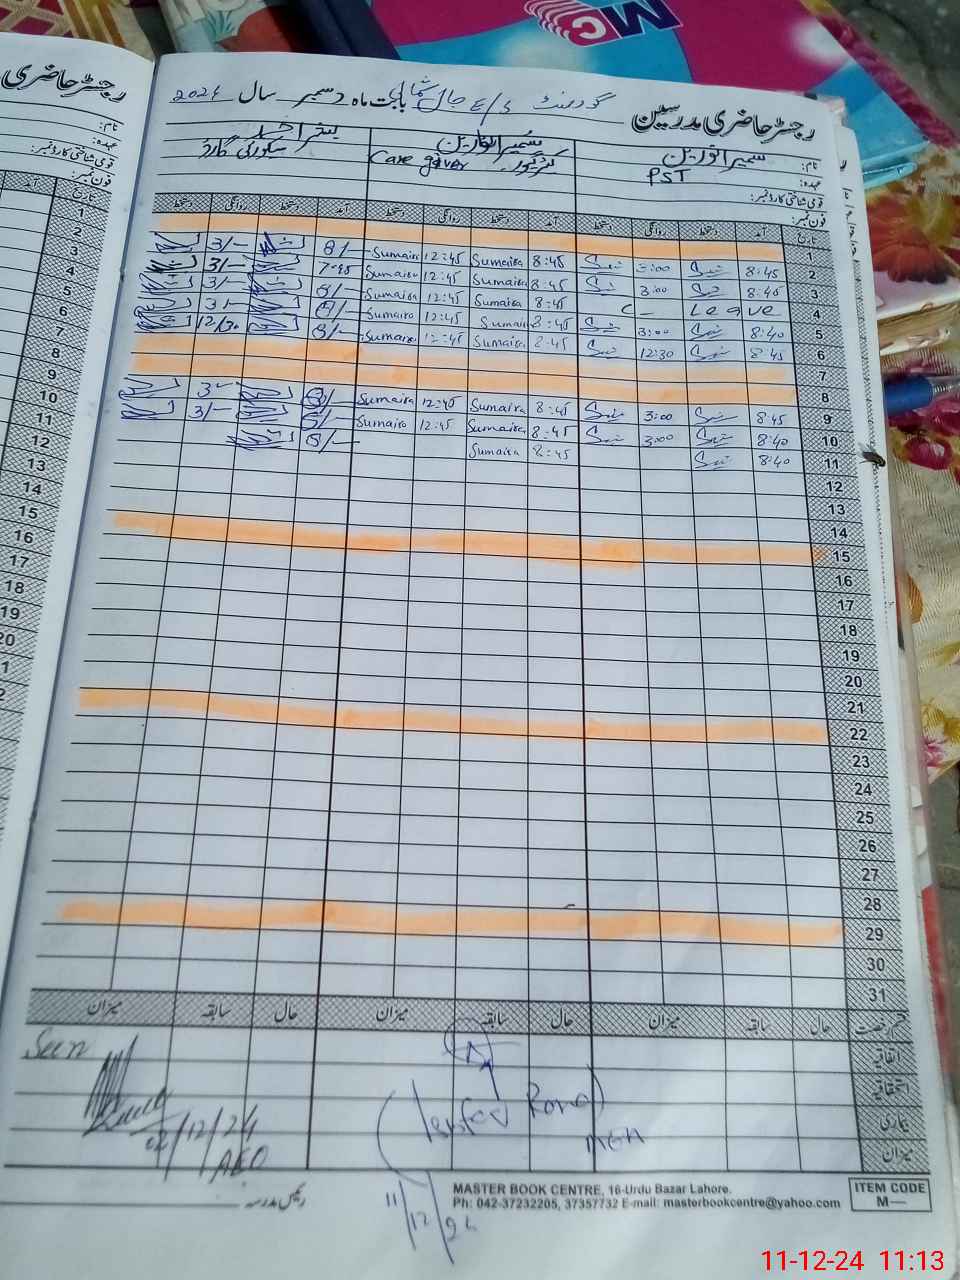 MC
رجسٹر حاضری مدرسین گورنمنٹ E/S جال شمالی بابت ماہ دسمبر سال 2024
نام: سمیرا نورین سمیرا نورین
عہدہ: PST کیئر گیور Care giver سیکورٹی گارڈ
قومی شناختی کارڈ نمبر:
فون نمبر:
تاریخ آمد دستخط روانگی دستخط آمد دستخط روانگی دستخط آمد دستخط روانگی دستخط
1
2 8:45 3:00 8:45 Sumaira 12:45 Sumaira 8/- 3/-
3 8:40 3:00 8:45 Sumaira 12:45 Sumaira 7:45 3/-
4 Leave 8:40 Sumaira 12:45 Sumaira 8/- 3/-
5 8:40 3:00 8:45 Sumaira 12:45 Sumaira 8/- 3/-
6 8:45 12:30 8:45 Sumaira 12:45 Sumaira 8/- 12/30
7
8
9 8:45 3:00 8:45 Sumaira 12:45 Sumaira 8/- 3/-
10 8:40 3:00 8:45 Sumaira 12:45 Sumaira 8/- 3/-
11 8:40 8:45 Sumaira 8/-
12
13
14
15
16
17
18
19
20
21
22
23
24
25
26
27
28
29
30
31
قسم رخصت حال سابقہ میزان حال سابقہ میزان حال سابقہ میزان
اتفاقیہ
استحقاقیہ
بیماری
میزان
Seen
02/12/24
AEO
MEA
11/12/24
رئیس مدرسہ
MASTER BOOK CENTRE, 16-Urdu Bazar Lahore.
Ph: 042-37232205, 37357732 E-mail: masterbookcentre@yahoo.com
ITEM CODE
M—
رجسٹر حاضری
نام:
عہدہ:
قومی شناختی کارڈ نمبر:
فون نمبر:
تاریخ آمد
1
2
3
4
5
6
7
8
9
10
11
12
13
14
15
16
17
18
19
20
11-12-24 11:13